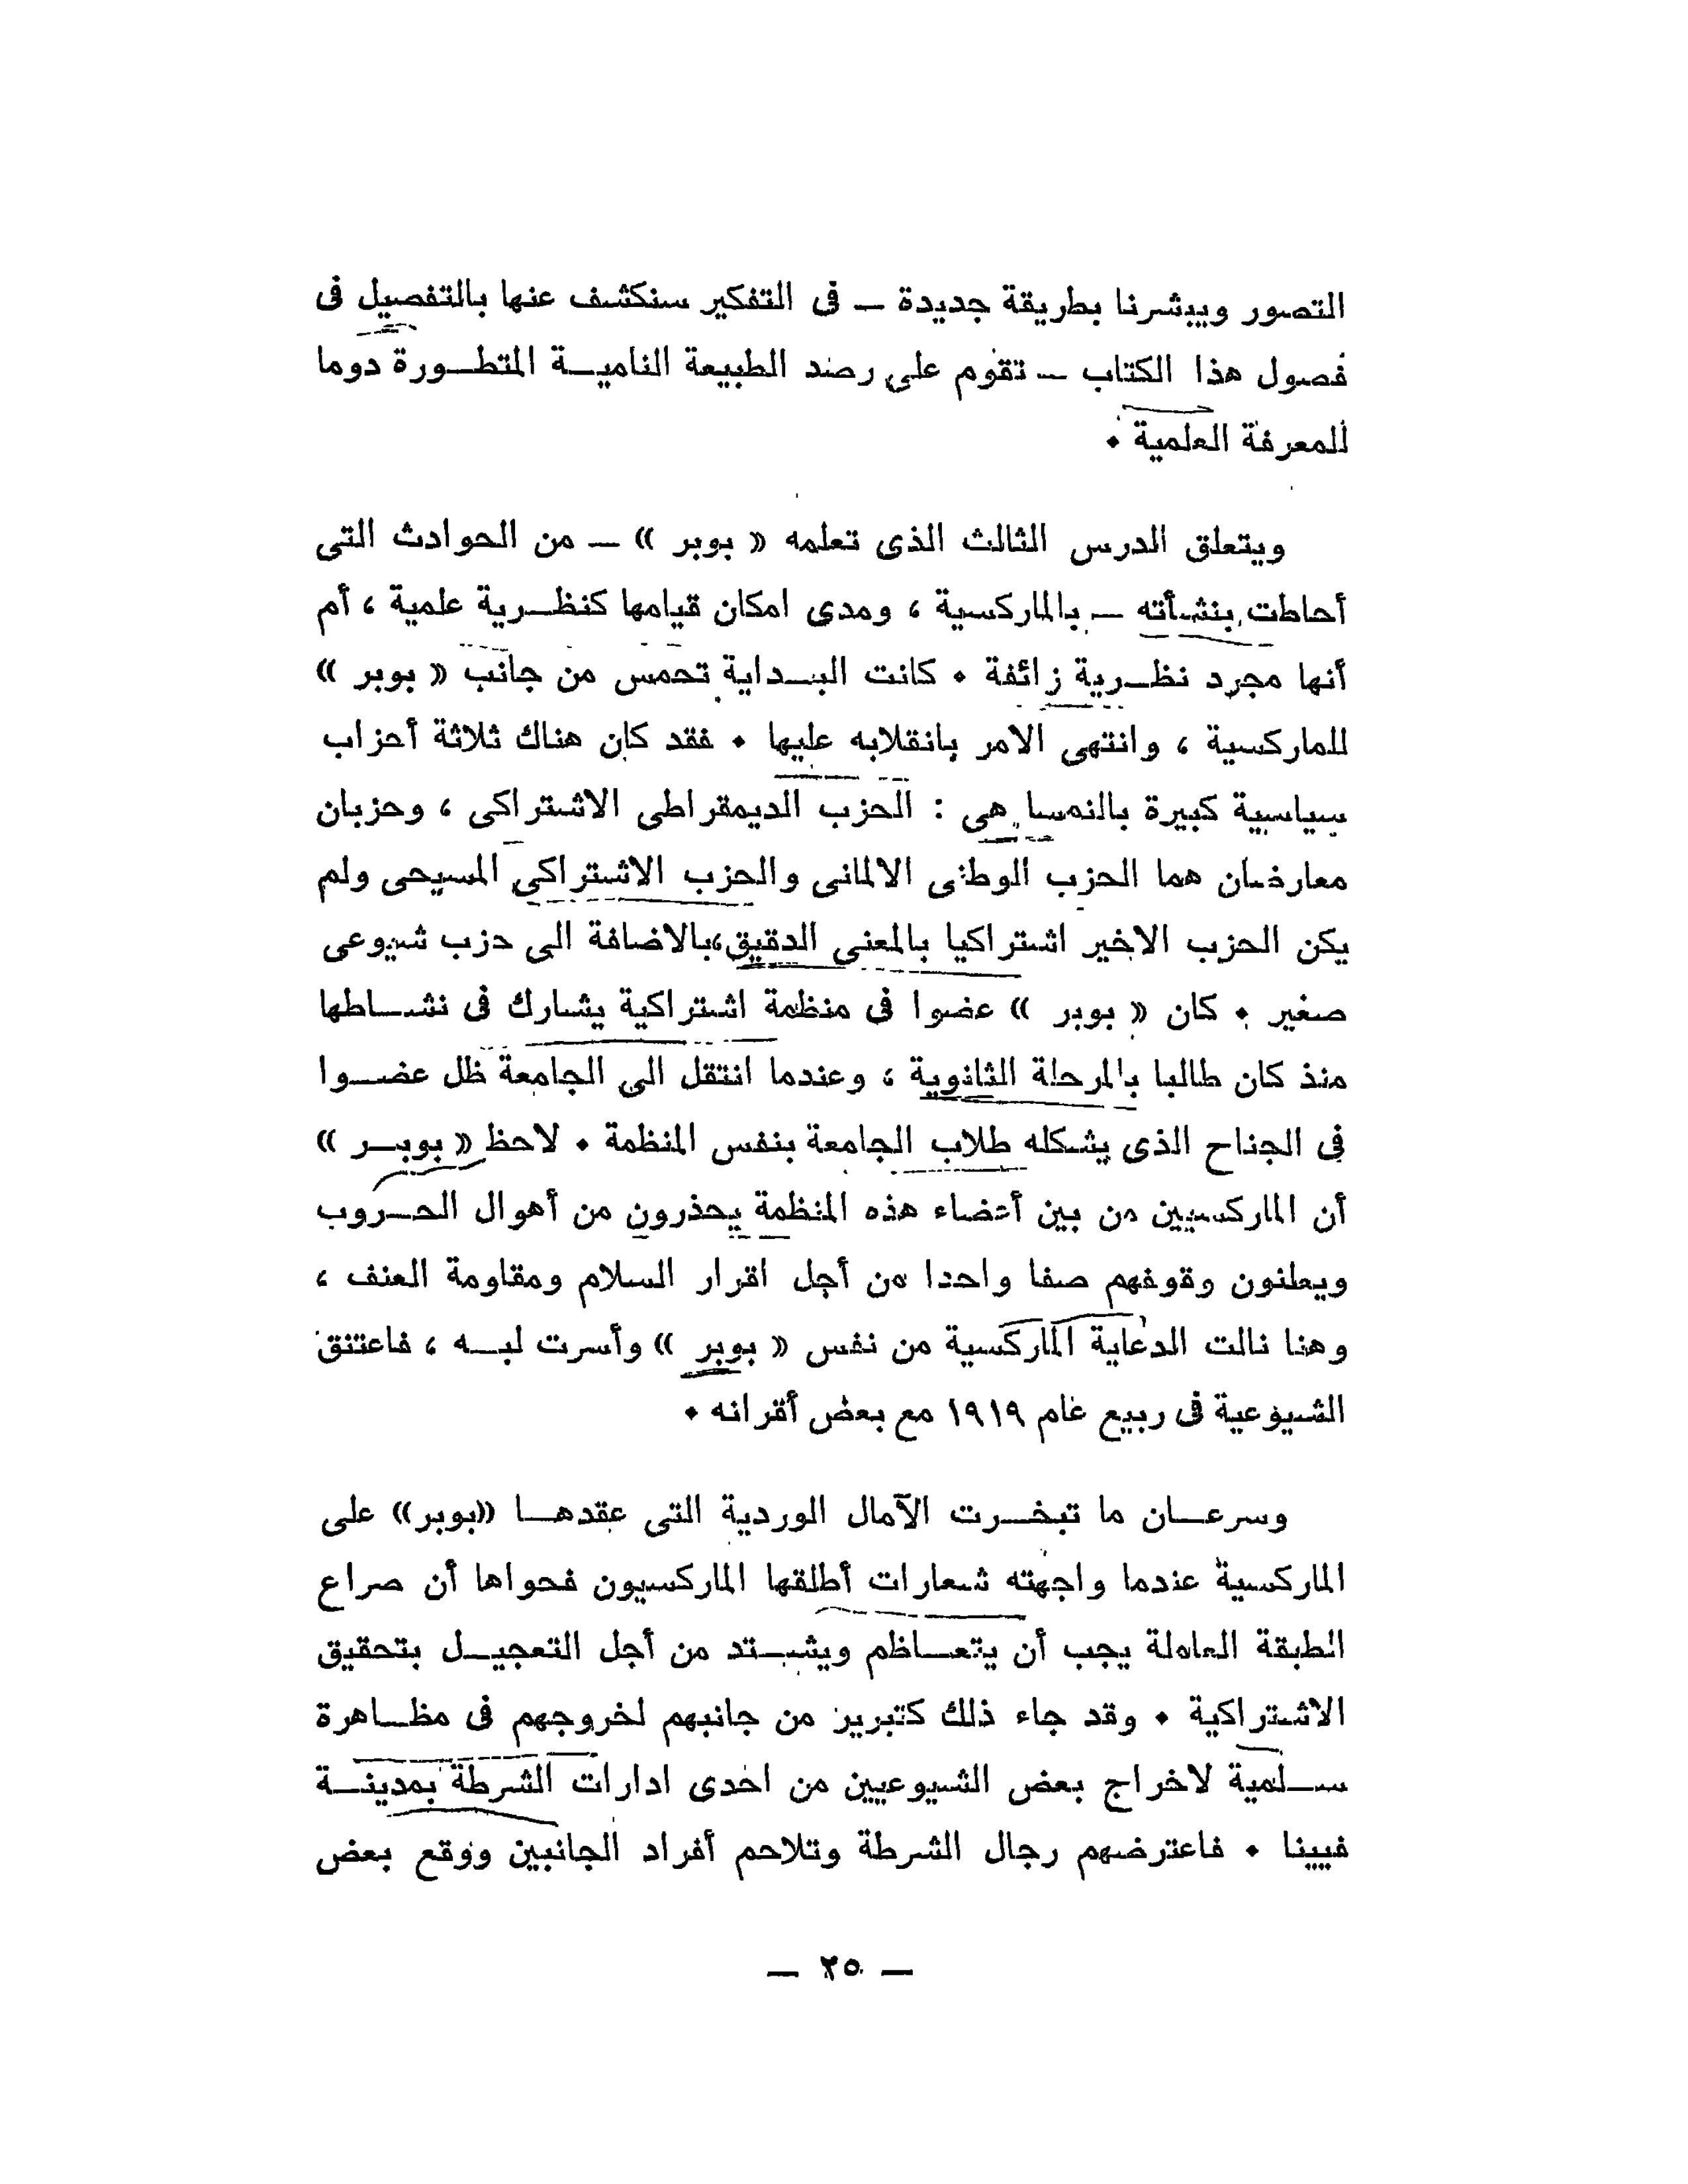 التصور ويبشرنا بطريقة جديدة ــ فى التفكير سنكشف عنها بالتفصيل فى
فصول هذا الكتاب ــ تقوم على رصد الطبيعة الناميـــة المتطـــورة دوما
للمعرفة العلمية •
ويتعلق الدرس الثالث الذى تعلمه « بوبر » ــ من الحوادث التى
أحاطت بنشأته ــ بالماركسية ، ومدى امكان قيامها كنظـــرية علمية ، أم
أنها مجرد نظـــرية زائفة • كانت البـــداية تحمس من جانب « بوبر »
للماركسية ، وانتهى الامر بانقلابه عليها • فقد كان هناك ثلاثة أحزاب
سياسية كبيرة بالنمسا هى : الحزب الديمقراطى الاشتراكى ، وحزبان
معارضان هما الحزب الوطنى الالمانى والحزب الاشتراكى المسيحى ولم
يكن الحزب الاخير اشتراكيا بالمعنى الدقيق،بالاضافة الى حزب شيوعى
صغير • كان « بوبر » عضوا فى منظمة اشتراكية يشارك فى نشـــاطها
منذ كان طالبا بالمرحلة الثانوية ، وعندما انتقل الى الجامعة ظل عضـــوا
فى الجناح الذى يشكله طلاب الجامعة بنفس المنظمة • لاحظ « بوبـــر »
أن الماركسيين من بين أعضاء هذه المنظمة يحذرون من أهوال الحـــروب
ويعلنون وقوفهم صفا واحدا من أجل اقرار السلام ومقاومة العنف ،
وهنا نالت الدعاية الماركسية من نفس « بوبر » وأسرت لبـــه ، فاعتنق
الشيوعية فى ربيع عام ١٩١٩ مع بعض أقرانه •
وسرعـــان ما تبخـــرت الآمال الوردية التى عقدهـــا «بوبر» على
الماركسية عندما واجهته شعارات أطلقها الماركسيون فحواها أن صراع
الطبقة العاملة يجب أن يتعـــاظم ويشـــتد من أجل التعجيـــل بتحقيق
الاشتراكية • وقد جاء ذلك كتبرير من جانبهم لخروجهم فى مظـــاهرة
ســـلمية لاخراج بعض الشيوعيين من احدى ادارات الشرطة بمدينـــة
فيينا • فاعترضهم رجال الشرطة وتلاحم أفراد الجانبين ووقع بعض
ــ ٢٥ ــ